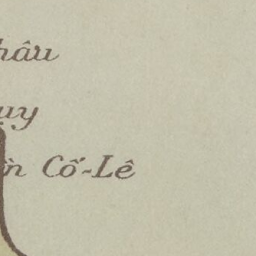 hâu
uy
n Cố-Lê